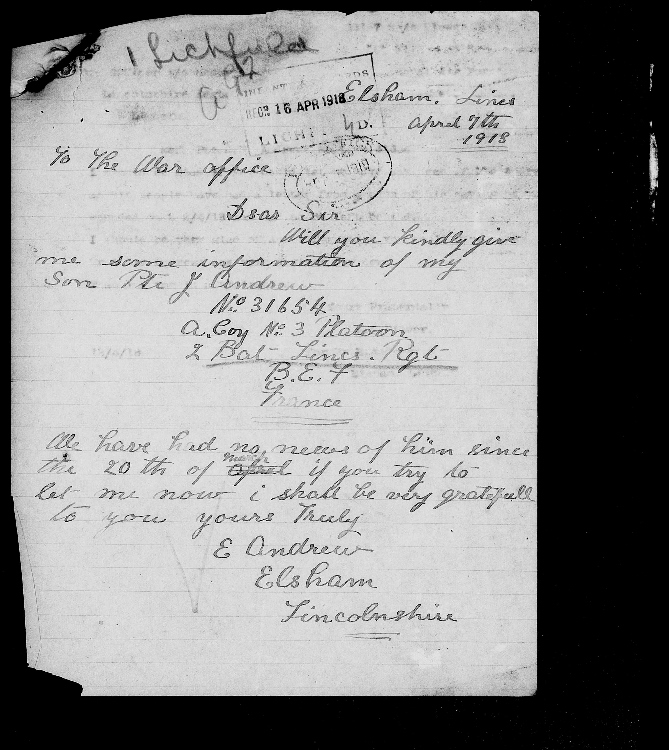 1 Lichfield
RECD 16 APR 1918
Elsham. Lincs
LICHF
D.
April 7th
1918
To The War office
Dear Sir
Will you kindly give
me some information of my
Son Pte J Andrew
No 31654
A. Coy No 3 Platoon
2 Bat Lincs. Rgt
B.E.F
France
We have had no news of him since
march
the 20 th of April if you try to
let me now i shall be very gratefull
to you yours Truly
E Andrew
Elsham
Lincolnshire